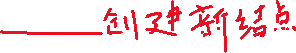 创建新结点